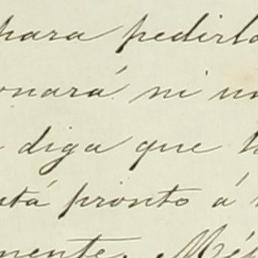 para pedirlo
onará ni un
diga que
tá pronto á
mente. Mé